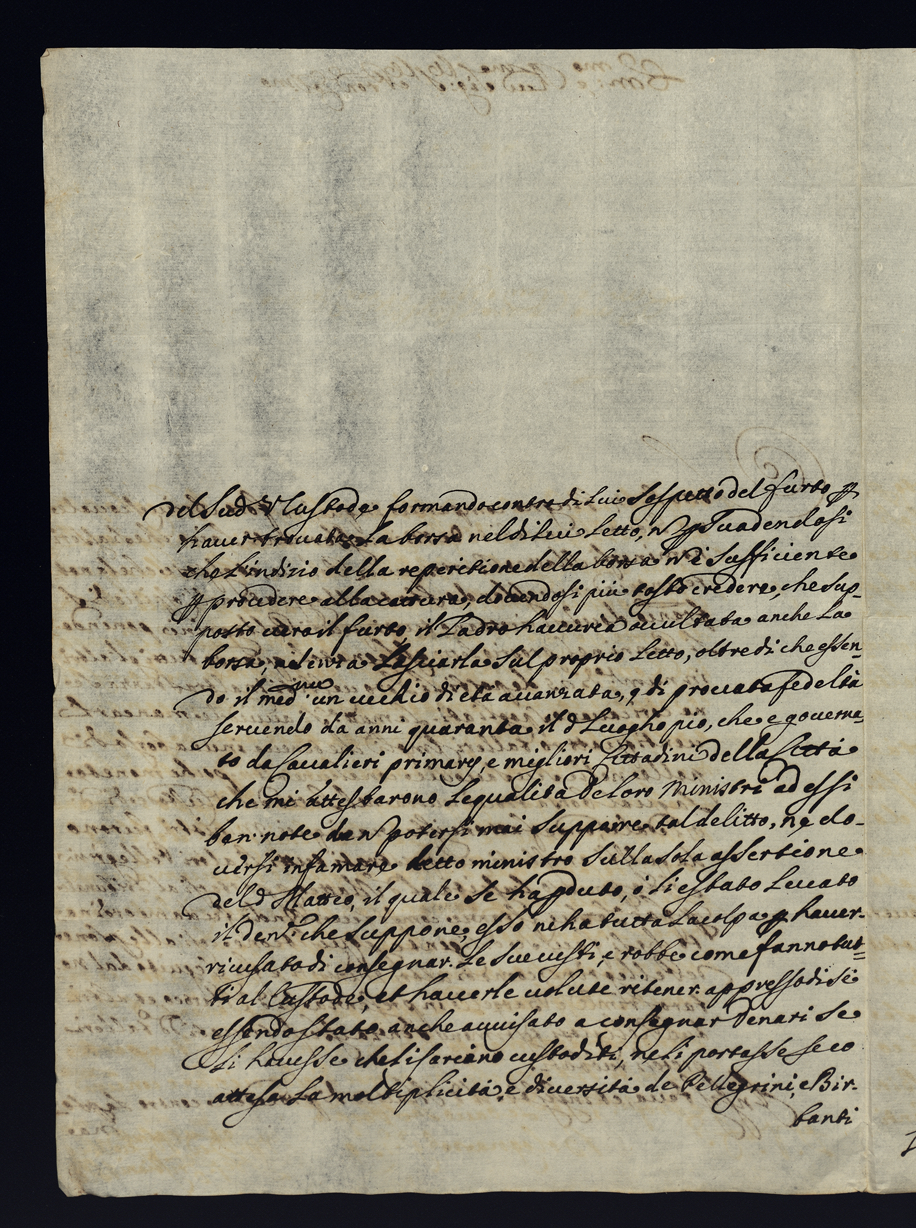 del Sud.º Custode, formando contro di lui sospetto del furto p
haver trovata la borsa nel di lui letto, nõ psuadendosi
che l'indizio della reperitione della borsa nõ è sufficiente
p procedere alla cattura, dovendosi più tosto credere, che sup-
posto vero il furto, il Ladro haveria occultata anche la
borsa, nè lasciarla sul proprio letto, oltre di che essen-
do il med.mo un vecchio di età avanzata, e di provata fedeltà
servendo da anni quaranta il d.º Luogho pio, che e governa-
to da Cavalieri primarij, e migliori Cittadini della Città
che mi attestarono le qualità de loro Ministri ad essi
ben note da nõ potersi mai supporre tal delitto, nè do-
versi infamare detto ministro sulla sola assertione
del d.º Matteo, il quale se ha pduto, ò li è stato levato
il den.º che suppone, esso ne ha tutta la colpa p haver
ricusato di consegnar le sue vesti, e robbe come fanno tut-
ti al Custode, et haverle volute ritener appresso di sè
essendo stato anche avvisato a consegnar denari se
li havesse che li sariano custoditi, nè li portasse seco
attesa la moltiplicità e diversità de Pellegrini, e Bir-
banti